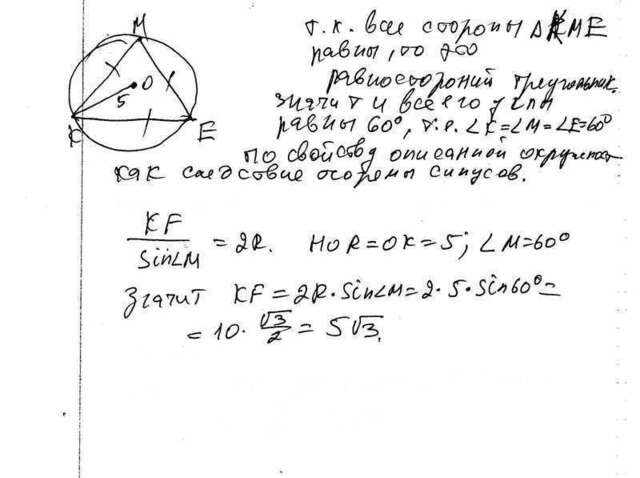 M
O
5
K
E
т.к. все стороны ΔKME
равны, то это
равносторонний треугольник,
значит и все его углы
равны 60°, т.е. ∠K=∠M=∠E=60°
по свойству описанной окружност
как следствие теоремы синусов.
KF/sin∠M = 2R. НО R=OK=5; ∠M=60°
Значит KF = 2R·sin∠M = 2·5·sin60° =
= 10·√3/2 = 5√3.